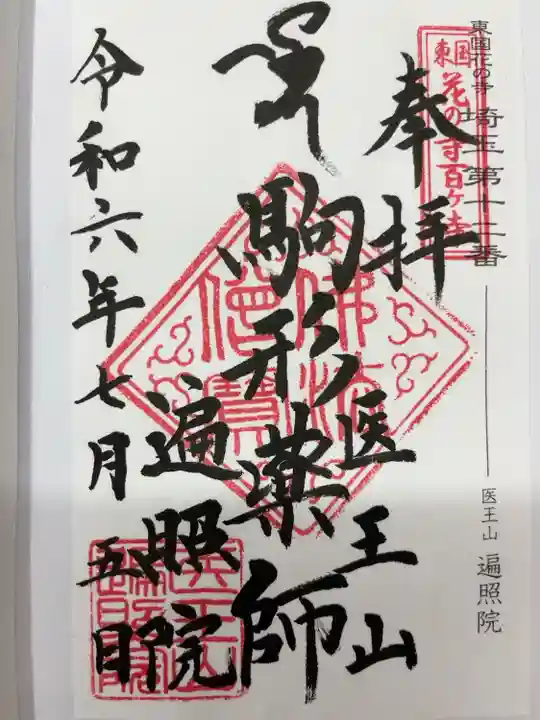 東国花の寺 埼玉第十二番 医王山 遍照院
東国
花の寺百ケ寺
奉拝
医王山
駒形薬師
遍照院
令和六年七月五日
佛法
僧寳